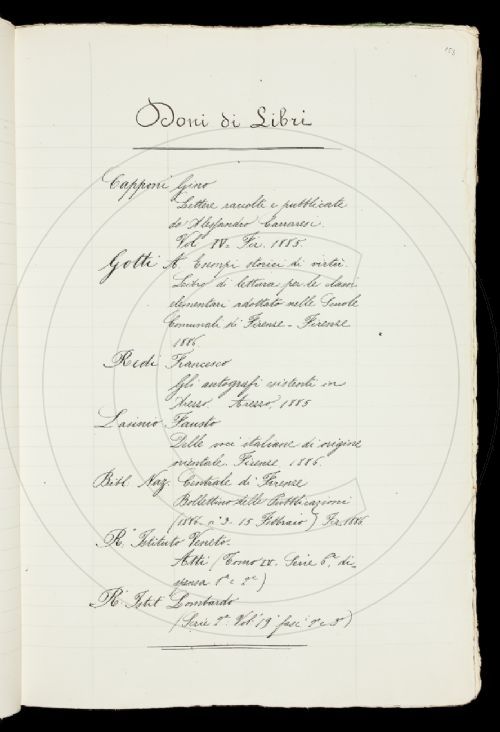 153
Doni di Libri
Capponi Gino
Lettere raccolte e pubblicate
da Alessandro Carraresi.
Vol.e IV. Fir. 1885.
Gotti A. Esempi storici di virtù.
Libro di lettura per le classi
elementari adottato nelle Scuole
Comunali di Firenze - Firenze
1886
Redi Francesco
Gli autografi esistenti in
Arezzo. Arezzo, 1885
Lasinio Fausto
Delle voci italiane di origine
orientale. Firenze 1886.
Bibl. Naz. Centrale di Firenze
Bollettino delle Pubblicazioni
(1886 n° 3. 15 Febbraio) Fir. 1886
R. Istituto Veneto.
Atti (Tomo IV. Serie 6a di-
spensa 1a e 2a)
R. Istit Lombardo
(Serie 2a Vol. 19 fasc. 2° e 3°)